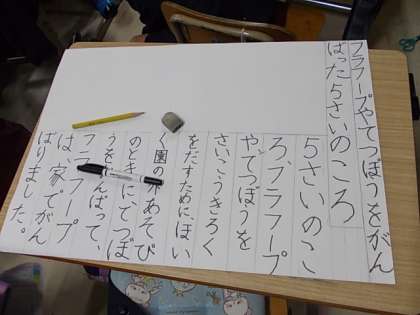 フラフープやてつぼうをがん
ばった5さいのころ
5さいのこ
ろ、フラフープ
やてつぼうを
さいこうきろく
をだすために、ほい
く園の外あそび
のときに、てつぼ
うをがんばって、
フラフープ
は、家でがん
ばりました。